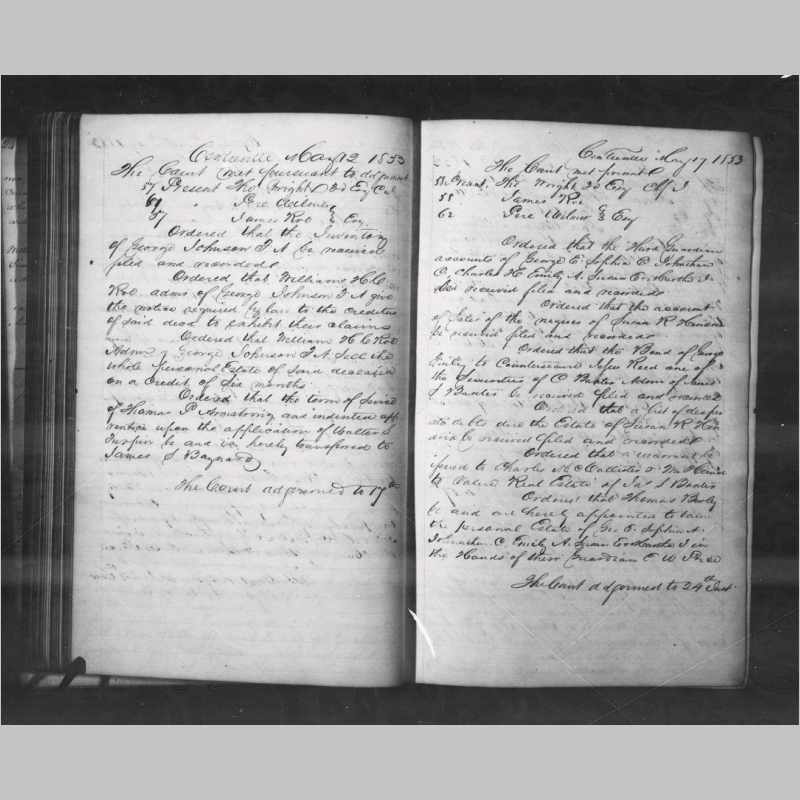 Centreville May 12 1853
The Court met pursuant to adjournt
57 Present Tho Wright 3d Esq C. J.
61 " Pere Wilmer
57 " James Roe } Esq.
Ordered that the Inventory
of George Johnson F. N. be received
filed and recorded
Ordered that William H. C.
Roe admr of George Johnson F N give
the notice required by law to the creditors
of said decd to exhibit their claims
Ordered that William H C Roe
Admr of George Johnson F. N. sell the
whole personal Estate of said deceased
on a credit of six months
Ordered that the term of service
of Thomas P. Armstrong and indented app
rentice upon the application of Walter
be and is hereby transferred to
James S Baynard
The Court adjourned to 17th
Centreville May 17 1853
The Court met pursuant
58 Present. Tho Wright 3d Esq Cf J
58 James Roe
62 Pere Wilmer } Esq
Ordered that the Third Guardian
accounts of George E. Sophia C Johnathan
C, Charles H. Emily A. Susan E. &
be received filed and recorded
Ordered that the account
of sales of the negroes of Susan R
be received filed and recorded
Ordered that the Bond of George
to Countersecure Reed one of
the Securities of C Baxter Admr of James
S Baxter be received filed and recorded
Ordered that a list of desper
ate debts due the Estate of Susan R
be received filed and recorded
Ordered that a warrant be
issued to Charles McCallister & Wm
to value Real Estate of Jas S Baxter
Ordered that Thomas
be and are hereby appointed to
the personal Estate of Geo. E. Sophia A.
Johnathan C. Emily A. Susan E & in
the Hands of their Guardian E W
The Court adjourned to 24th Inst.